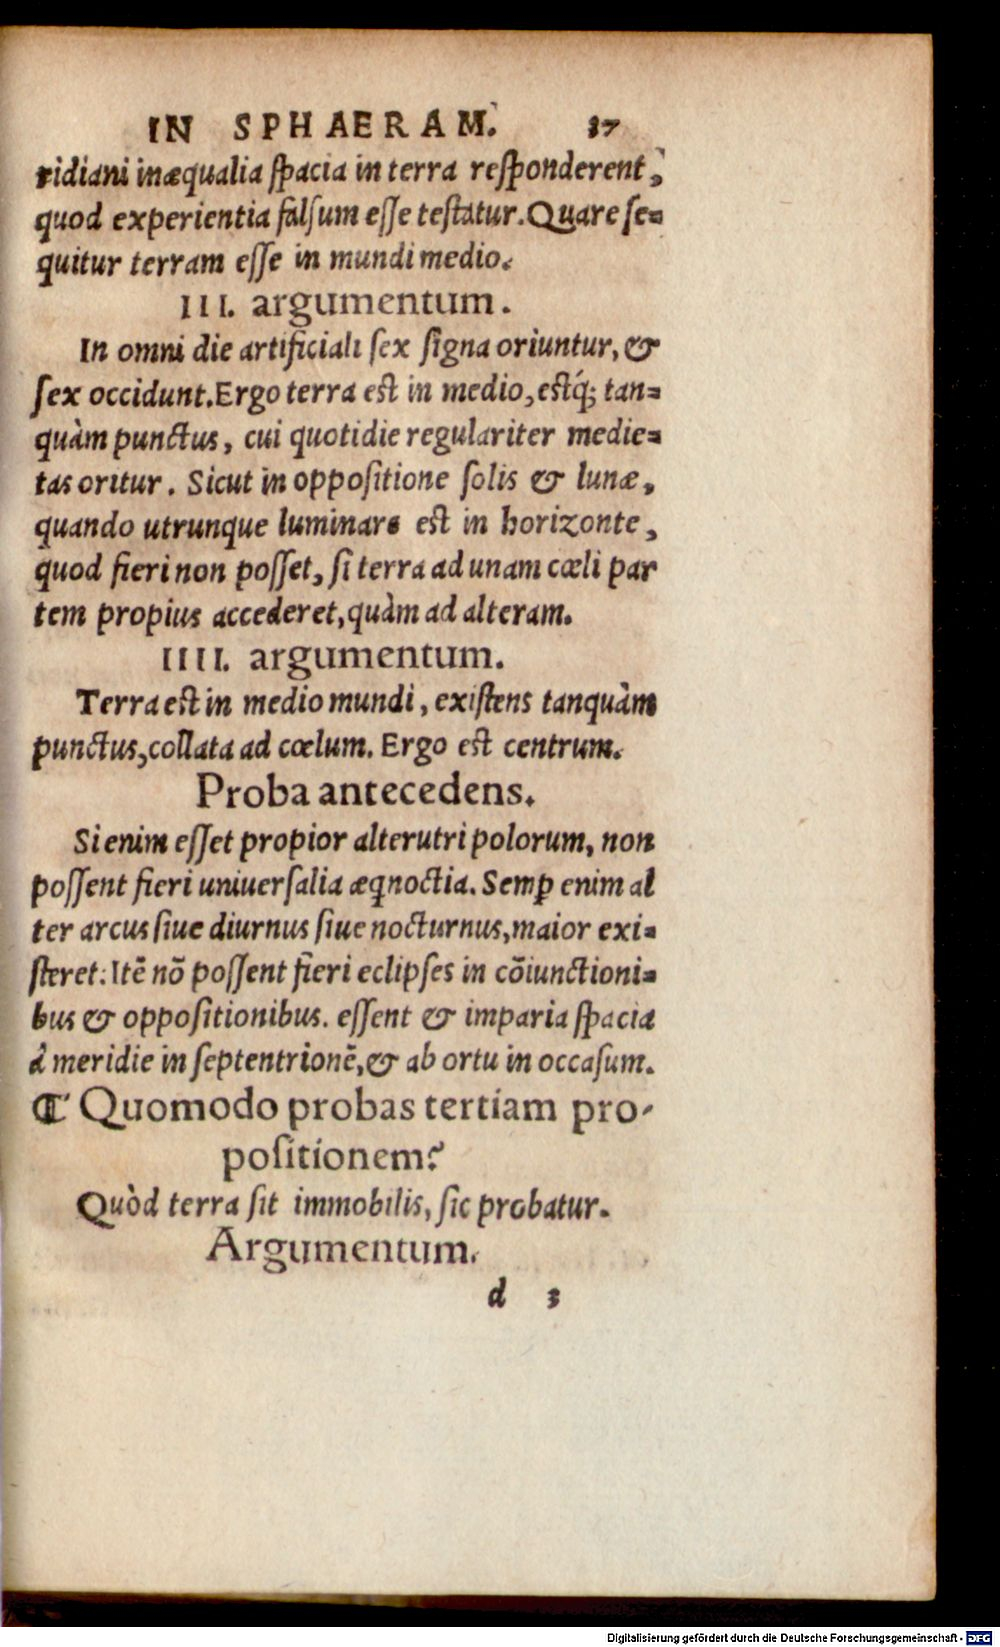 IN SPHAERAM. 27
ridiani inæqualia ſpacia in terra reſponderent,
quod experientia falſum eſſe teſtatur. Quare ſe-
quitur terram eſſe in mundi medio.
III. argumentum.
In omni die artificiali ſex ſigna oriuntur, &
ſex occidunt. Ergo terra eſt in medio, eſtq́; tan-
quàm punctus, cui quotidie regulariter medie-
tas oritur. Sicut in oppoſitione ſolis & lunæ,
quando utrunque luminare eſt in horizonte,
quod fieri non poſſet, ſi terra ad unam cœli par
tem propius accederet, quàm ad alteram.
IIII. argumentum.
Terra eſt in medio mundi, exiſtens tanquàm
punctus, collata ad cœlum. Ergo eſt centrum.
Proba antecedens.
Si enim eſſet propior alterutri polorum, non
poſſent fieri uniuerſalia æq̃noctia. Semꝑ enim al
ter arcus ſiue diurnus ſiue nocturnus, maior exi-
ſteret: Itẽ nõ poſſent fieri eclipſes in cõiunctioni-
bus & oppoſitionibus. eſſent & imparia ſpacia
à meridie in ſeptentrionẽ, & ab ortu in occaſum.
¶ Quomodo probas tertiam pro-
poſitionem?
Quòd terra ſit immobilis, ſic probatur.
Argumentum.
d 3
Digitalisierung gefördert durch die Deutsche Forschungsgemeinschaft - DFG